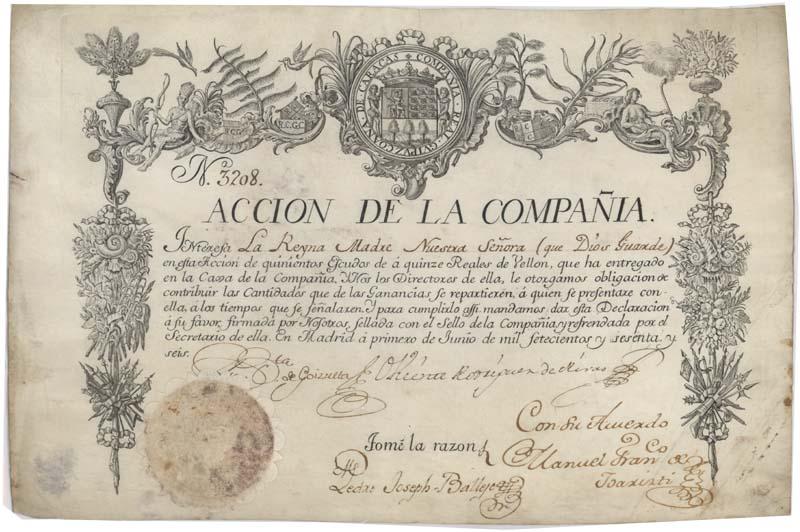 REAL COMPAÑIA GUIPUZCOANA DE CARACAS
R.C.G.
R.C.G.C.
N. 3208.
ACCION DE LA COMPAÑIA.
INteresa La Reyna Madre Nuestra Señora (que Dios Guarde)
en esta Accion de quinientos Escudos de á quinze Reales de Vellon, que ha entregado
en la Caxa de la Compañia. Y Nos los Directores de ella, le otorgamos obligacion de
contribuir las Cantidades que de las Ganancias, se repartieren, á quien se presentare con
ella, a los tiempos que se señalaren. Y para cumplirlo assi mandamos dar esta Declaracion
á su favor, firmada por Nosotros, sellada con el Sello de la Compañia, y refrendada por el
Secretario de ella. En Madrid á primero de Junio de mil setecientos y sesenta, y
seis.
de Goizueta Vicente Rodriguez de Rivas
Con su Acuerdo
Tomé la razon
Manuel Fran.co de
Joseph